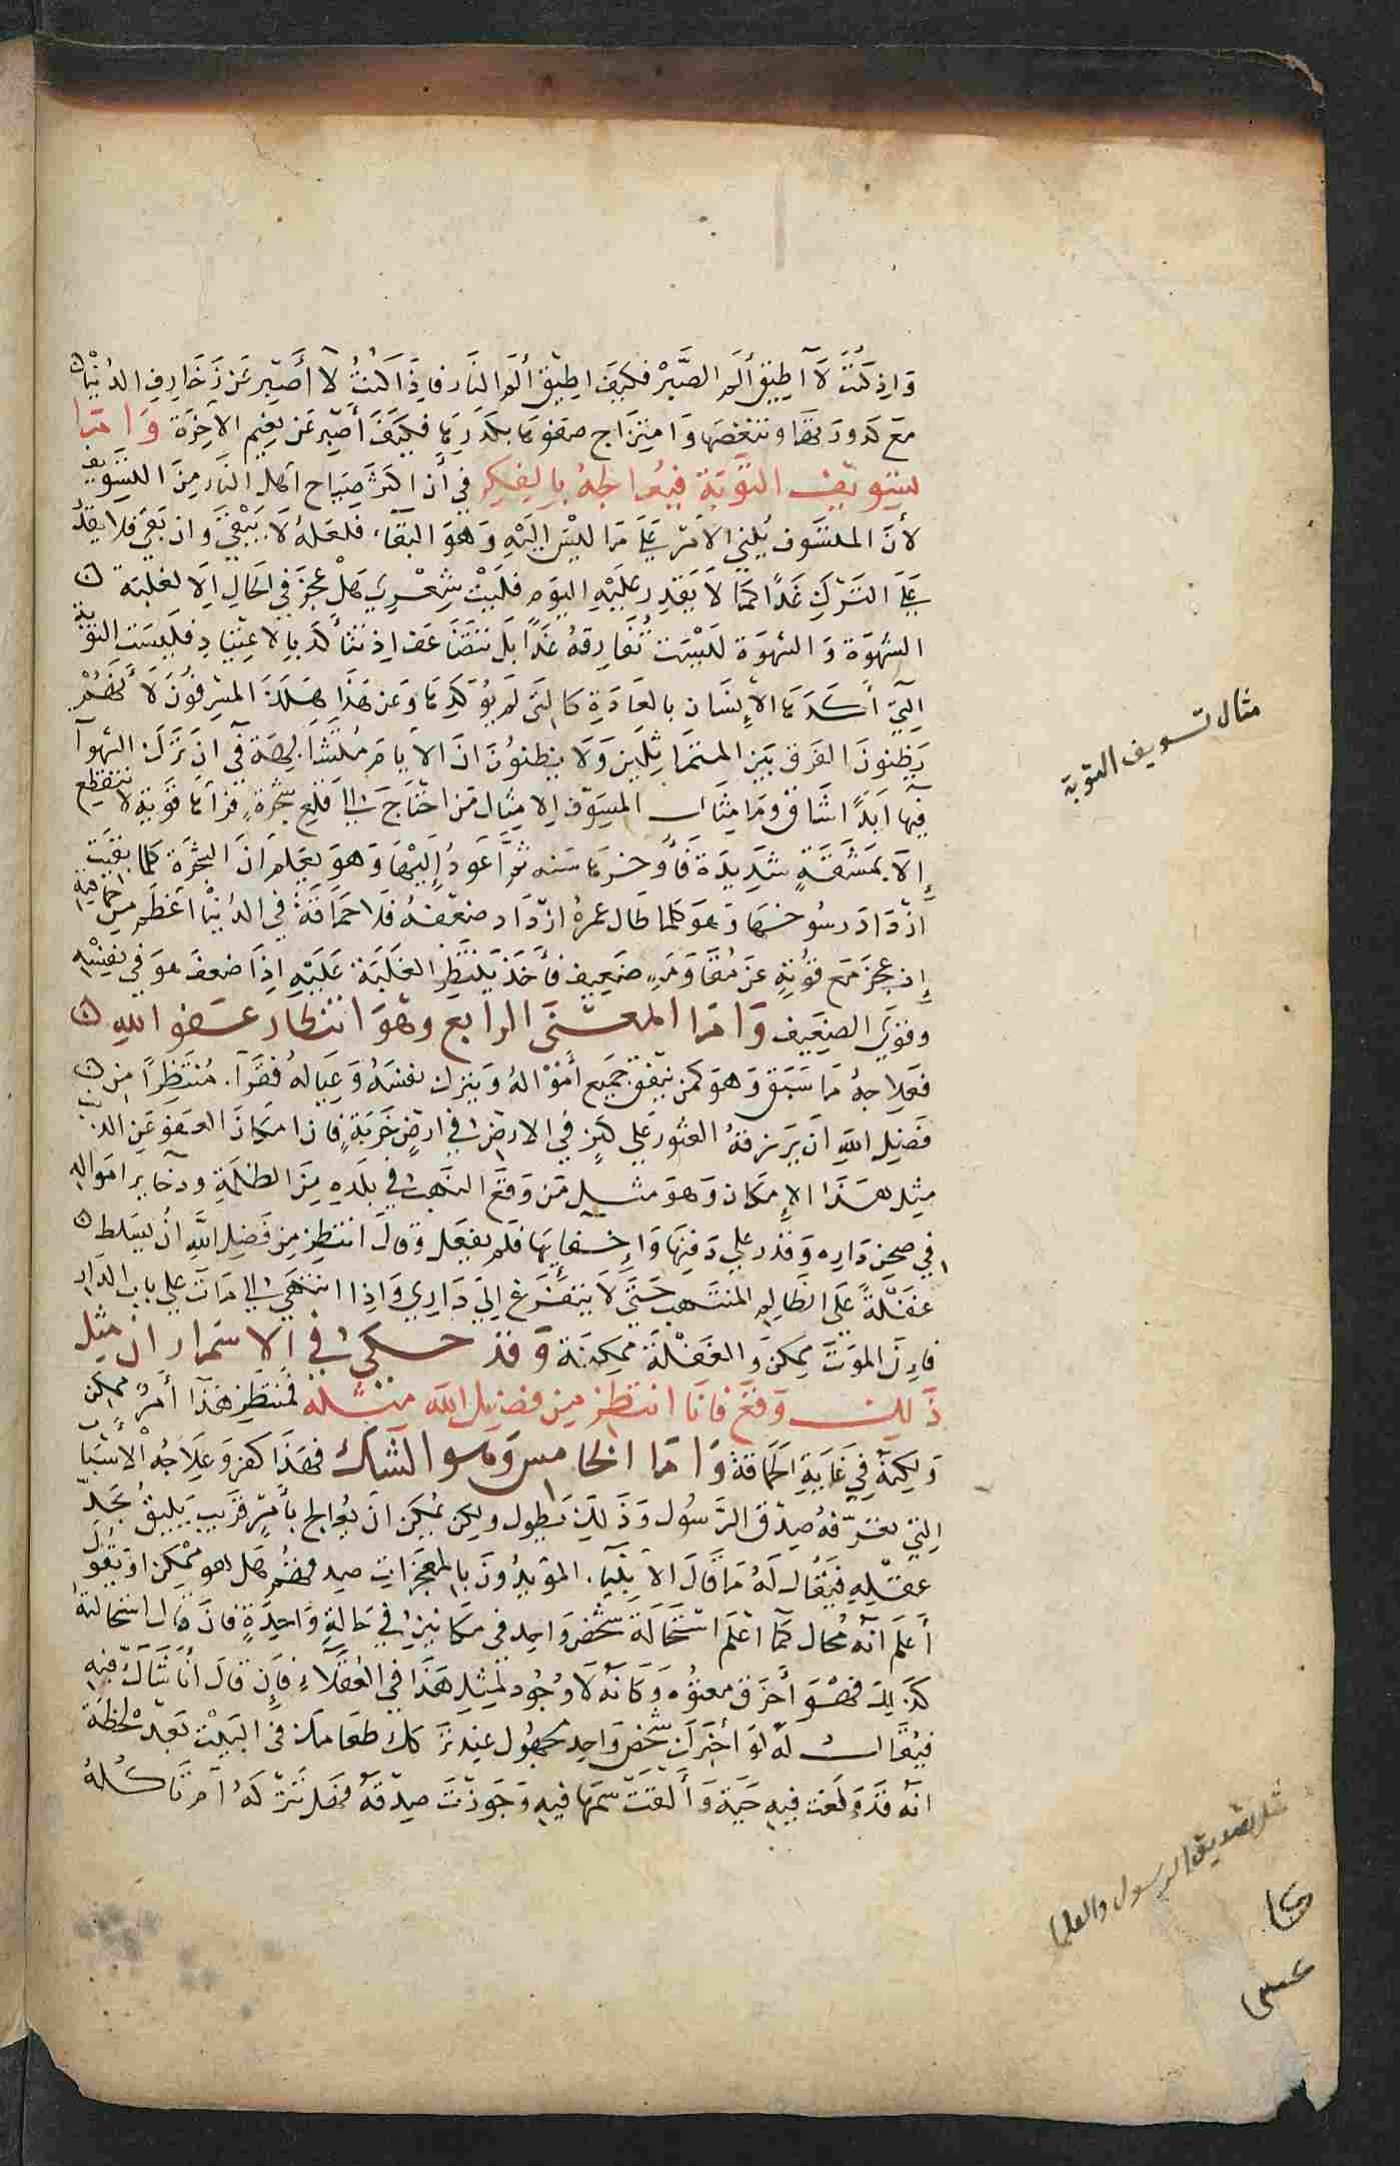 واذ كنت لا اطيق ألم الصبر فكيف اطيق ألم النار فاذا كنت لا أصبر عن زخارف الدنيا
مع كدورتها وتنغصها وامتزاج صفوها بكدرها فكيف أصبر عن نعيم الاخرة واما
تسويف التوبة فيعالجه بالفكر في أن اكثر صياح اهل النار من التسويف
لأن المسوف يبني الامر على ما ليس اليه وهو البقاء فلعله لا يبقى وان بقي فلا يقدر
على الترك غدا كما لا يقدر عليه اليوم فليت شعري هل عجز في الحال إلا لغلبة
الشهوة والشهوة ليست تفارقه غدا بل تتضاعف اذ تتأكد بالاعتياد فليست الشهوة
التي أكدها الإنسان بالعادة كالتي لم يؤكدها وعن هذا هلك المسوفون لأنهم
يظنون الفرق بين المتماثلين ولا يظنون ان الايام متشابهة في ان ترك الشهوات
فيها ابدا شاق وما مثال المسوف الا مثال من احتاج الى قلع شجرة فراها قوية لا تنقطع
إلا بمشقة شديدة فأوخرها سنه ثم اعود إليها وهو يعلم ان الشجرة كلما بقيت
ازداد رسوخها وهو كلما طال عمره ازداد ضعفه فلا حماقة في الدنيا اعظم من حماقته
إذ عجز مع قوته عن مقاومة ضعيف فأخذ ينتظر الغلبة عليه اذا ضعف هو في نفسه
وقوي الضعيف واما المعنى الرابع وهو انتظار عفو الله
فعلاجه ما سبق وهو كمن ينفق جميع أمواله ويترك نفسه وعياله فقرآ منتظرا من
فضل الله ان يرزقه العثور على كنز في الارض في ارض خربة فان امكان العفو عن الذنب
مثل هذا الإمكان وهو مثل من وقع النهب في بلده من الظلمة وذخاير امواله
في صحن داره وقدر على دفنها وإخفايها فلم يفعل وقال انتظر من فضل الله أن يسلط
غفلة على الظالم المنتهب حتى لا يتفرغ إلى داري واذا انتهى الى مات على باب الدار
فإن الموت ممكن والغفلة ممكنة وقد حكي في الاسمار ان مثل
ذلك وقع فانا انتظر من فضل الله مثله فمنتظر هذا أمر ممكن
ولكنه في غاية الحماقة واما الخامس وهو الشك فهذا كفر وعلاجه الأسباب
التي تعرفه صدق الرسول وذلك يطول ولكن يمكن ان يعالج بأمر قريب يليق بحد
عقله فيقال له ما قال الانبيآء المؤيدون بالمعجزات صدقهم هل هو ممكن او يقول
أعلم انه محال كما اعلم استحالة شخص واحد في مكانين في حالة واحدة فان قال استحالته
كذلك فهو أخرق معتوه وكانه لا وجود لمثل هذا في العقلاء فإن قال أنا شاك فيه
فيقال له لو أخبرك شخص واحد مجهول عند ترك طعامك في البيت بعد لحظة
انه قد ولغت فيه حية وألقت سمها فيه وجوزت صدقه فهل تتركه أم تأكله
مثال تسويف التوبة
مثل تصديق الرسول والعلما